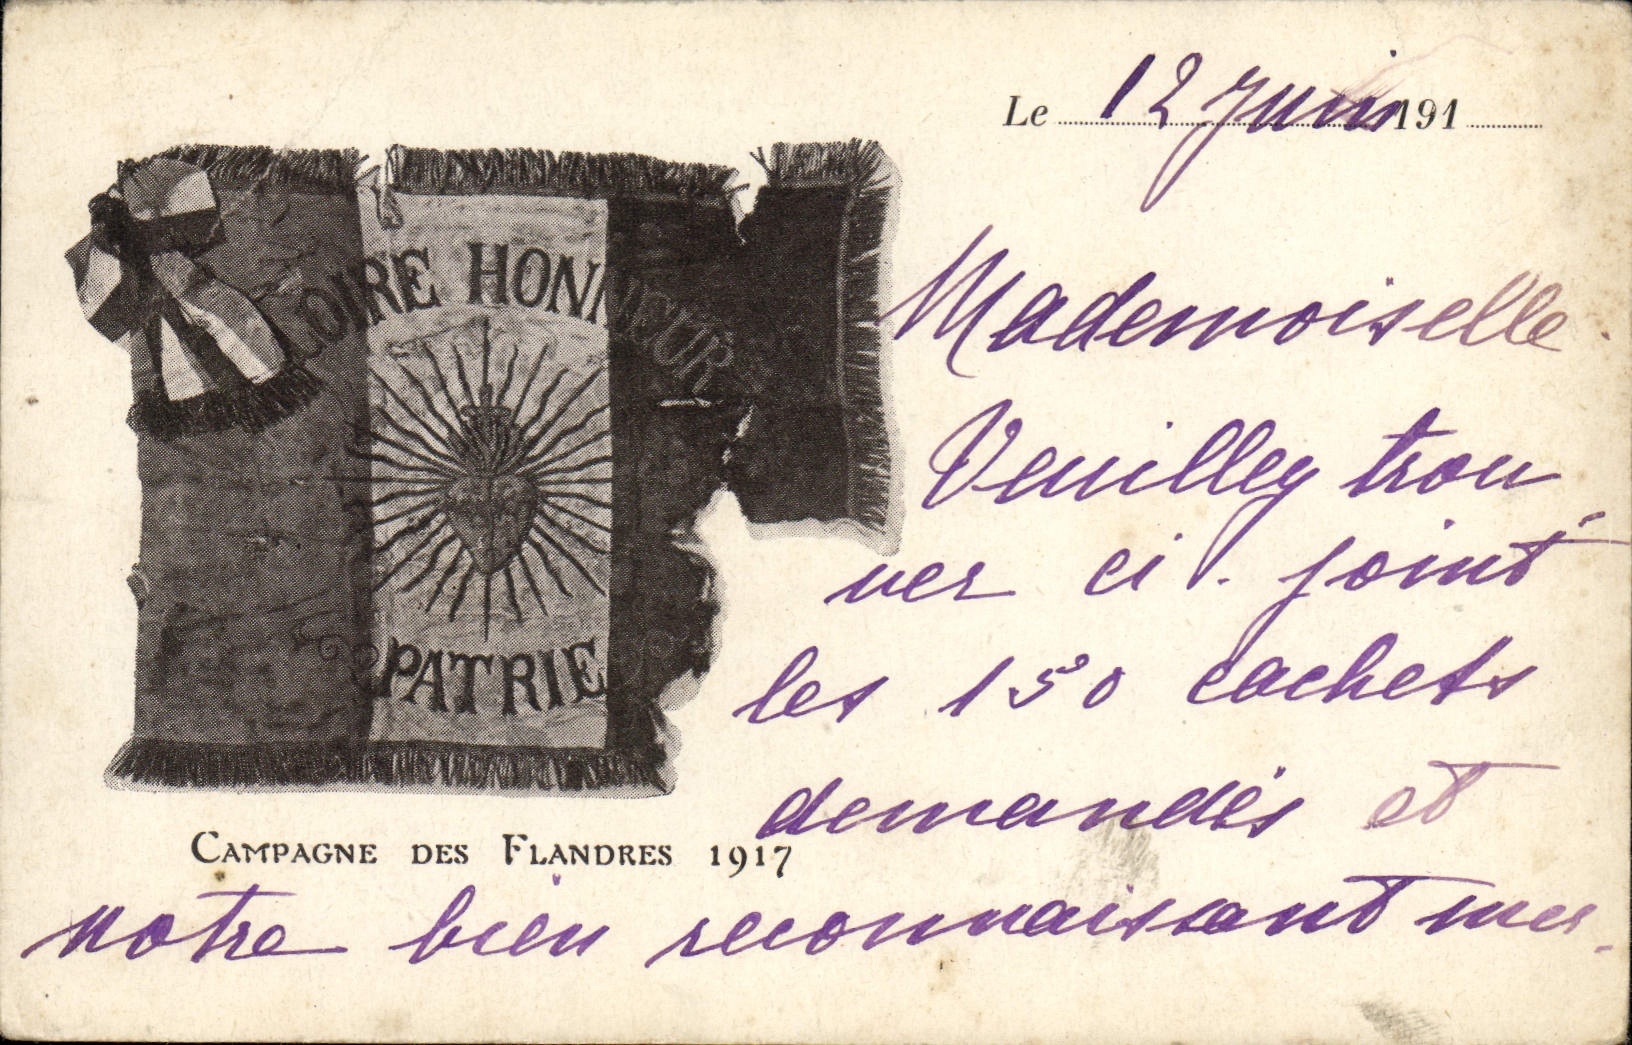 Le 12 Juin 191
GLOIRE HONNEUR
PATRIE
CAMPAGNE DES FLANDRES 1917
Mademoiselle.
Veuillez trou
ver ci. joint
les 150 cachets
demandés et
notre bien reconnaissant mer.